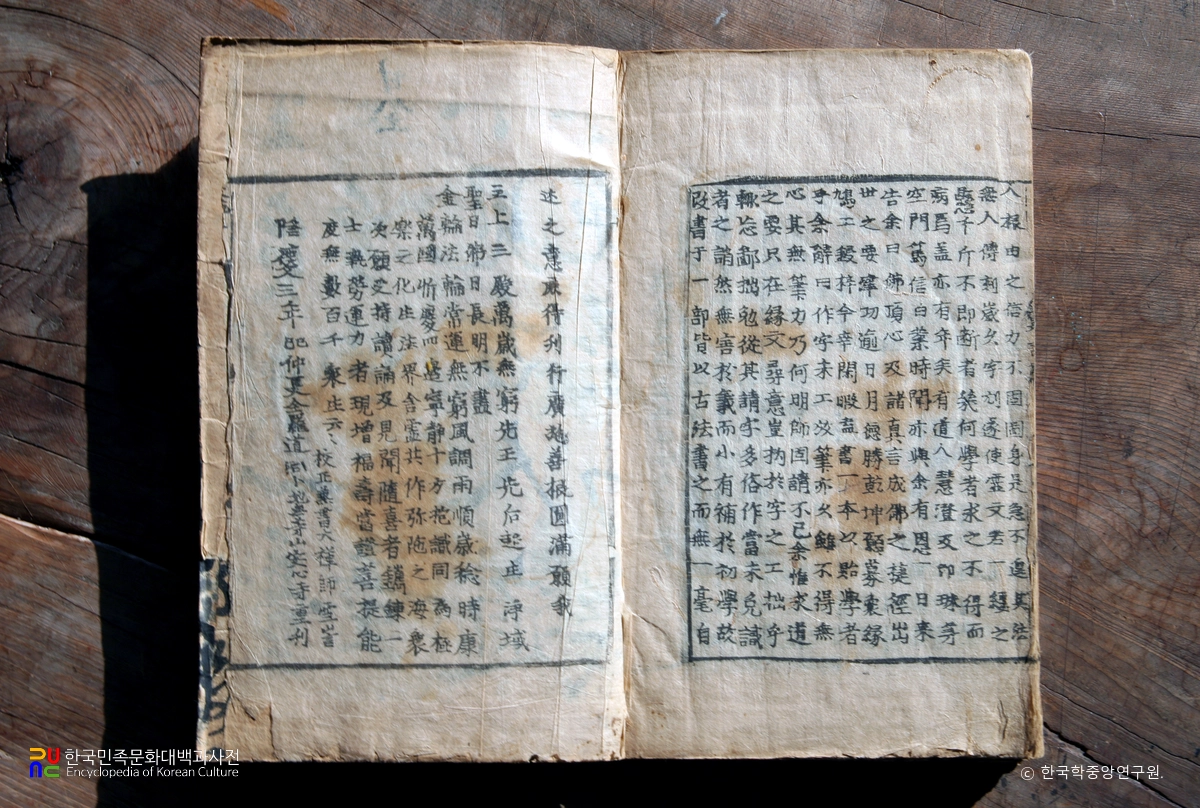 人根由之信力不固因身是急不邊其法
無人傳利歲久字刓遂使靈文若一縷之
懸千斤不即断者㡬何學者求之不得而
病焉盖亦有年矣有道人慧澄及印珠等
空門篤信白業時閑亦與余有恩一日来
告余曰佛頂心及諸真言成佛之捷徑出
世之要肆功逾日月德勝乾坤願募衆緣
鳩工鋟梓今幸閑暇盍書一本以貽學者
乎余辭曰作字未工效筆亦久雖不得無
心其無筆力乃何明師固請不已余惟求道
之要只在緣文尋意豈拘於字之工拙乎
輒忘鄙拙勉從其請字多俗作當未免識
者之誚然無害於義而小有補於初學故
改書于一部皆以古法書之而無一毫自
述之意庶得刊行廣施善根圓滿願我
主上三殿萬歲無窮先王先后起正浄域
聖日佛日長明不盡
金輪法輪常運無窮風調雨順歲稔時康
萬國忻慶四邊寧静十方抱識同為極
樂之化生法界含靈共作弥陁之海衆
次願受持讀誦及見聞隨喜者鍊一
士執勞運力者現增福壽當證菩提能
度無數百千衆生云々 校正兼書大禪師雪
隆慶三年 仲夏全羅道 無等山安心寺重刊
한국민족문화대백과사전
Encyclopedia of Korean Culture
© 한국학중앙연구원.